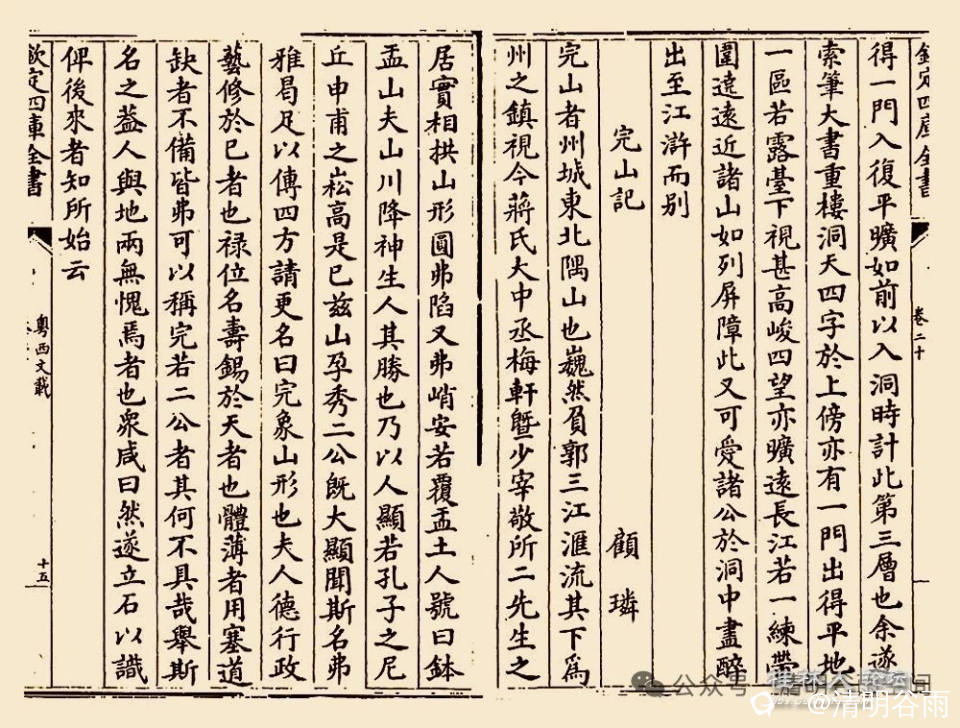 欽定四庫全書
卷二十
得一門入復平曠如前以入洞時計此第三層也余遂
索筆大書重樓洞天四字於上傍亦有一門出得平地
一區若露臺下視甚高峻四望亦曠遠長江若一練帶
圍遶遠近諸山如列屏障此又可愛諸公於洞中盡醉
出至江滸而別
完山記 顧璘
完山者州城東北隅山也巍然負郭三江滙流其下為
州之鎮視今蔣氏大中丞梅軒曁少宰敬所二先生之
居實相拱山形圓弗陷又弗峭安若覆盂土人號曰鉢
盂山夫山川降神生人其勝也乃以人顯若孔子之尼
丘申甫之崧高是已兹山孕秀二公既大顯聞斯名弗
雅曷足以傳四方請更名曰完象山形也夫人德行政
藝修於已者也禄位名壽錫於天者也體薄者用塞道
缺者不備皆弗可以稱完若二公者其何不具哉舉斯
名之葢人與地兩無愧焉者也衆咸曰然遂立石以識
俾後來者知所始云
欽定四庫全書
粵西文載
十五
公众号
@清明谷雨